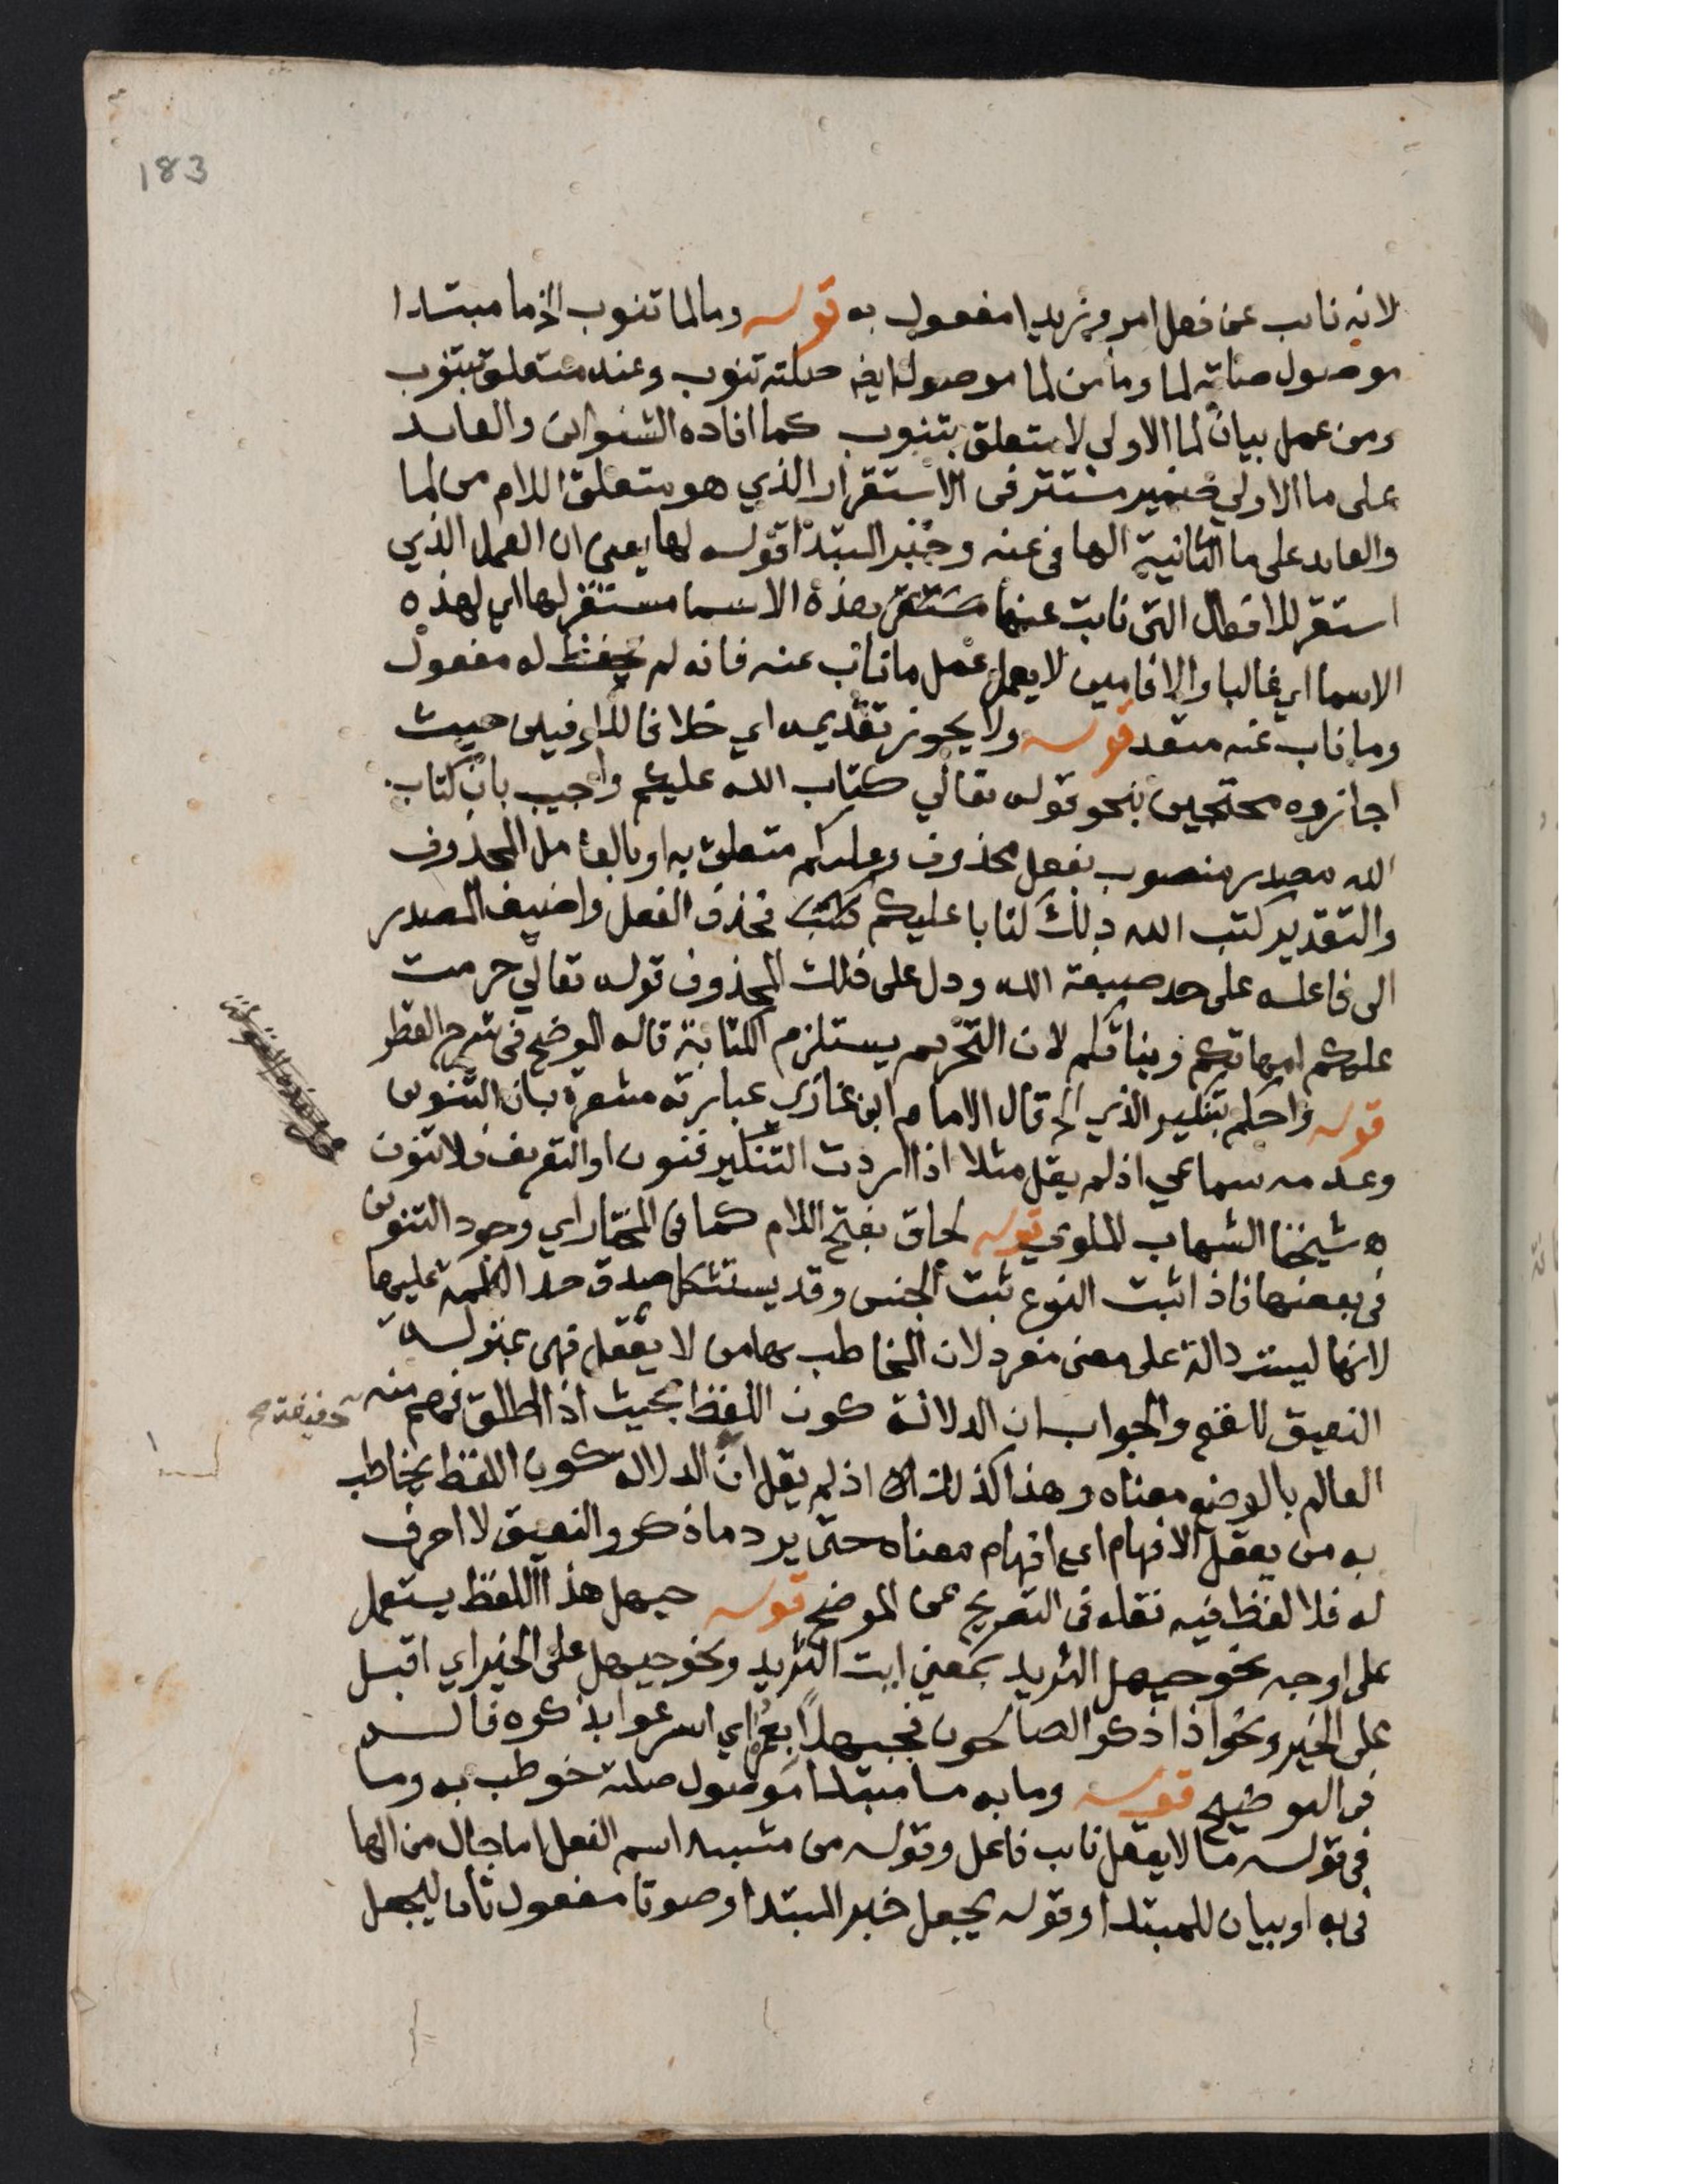 183
لانه نايب عن فعل امر وزيدا مفعول به قوله وما لما تنوب الخ ما مبتدا
موصول صلته لما وما من لما موصولة ايضا صلته تنوب وعنه متعلق بتنوب
ومن عمل بيان لما الاولى لا متعلق بتنوب كما افاده الشنواني والعايد
على ما الاولي ضمير مستتر فى الاستقرار الذي هو متعلق اللام من لما
والعايد على ما الثانية الها فى عنه وخبر المبتدا قوله لها يعنى ان العمل الذي
استقر للافعال التى نابت عنها هذه الاسما مستقر لها اي لهذه
الاسما اي غالبا والا فامين لا يعمل عمل ما ناب عنه فانه لم يحفظ له مفعول
وما ناب عنه متعد قوله ولا يجوز تقديمه اي خلافا للكوفيين حيث
اجازوه محتجين بنحو قوله تعالي كتاب الله عليكم واجيب بان كتاب
الله مصدر منصوب بفعل محذوف وعليكم متعلق به او بالعامل المحذوف
والتقدير كتب الله ذلك كتابا عليكم فحذف الفعل واضيف المصدر
الى فاعله على حد صبغة الله ودل على ذلك المحذوف قوله تعالي حرمت
عليكم امهاتكم وبناتكم لان التحريم يستلزم الكتابة قاله الموضح فى شرح القطر
قوله واحكم بتنكير الذي الخ قال الامام ابن غازي عبارته مشعرة بان التنوين
وعدمه سماعي اذ لم يقل مثلا اذا اردت التنكير فنون او التعريف فلا تنون
ه شيخنا الشهاب الملوي قوله لحاق بفتح اللام كما فى المختار اي وجود التنوين
فى بعضها فاذا ثبت النوع ثبت الجنس وقد يستشكل صدق حد الكلمة عليها
لانها ليست دالة على معنى مفرد لان المخاطب بها من لا يعقل فهى بمنزلة
النعيق للغنم والجواب ان الدلالة كون اللفظ بحيث اذا اطلق فهم منه
العالم بالوضع معناه وهذا كذلك اذ لم يقل ان الدلالة كون اللفظ يخاطب
به من يعقل الافهام اي افهام معناه حتى يرد ما ذكر والنعيق لا احرف
له فلا لفظ فيه نقله فى التصريح عن الموضح قوله حيهل هذا اللفظ يستعمل
على اوجه نحو حيهل الثريد بمعني ايت الثريد ونحو حيهل على الخير اي اقبل
على الخير ونحو اذا ذكر الصالحون فحيهلا بعمر اي اسرعوا بذكره قاله
فى التوضيح قوله وما به ما مبتدا موصول صلته خوطب به وما
فى قوله ما لا يعقل نايب فاعل وقوله من مشبه اسم الفعل اما حال من الها
فى به او بيان للمبتدا وقوله يجعل خبر المبتدا وصوتا مفعول ثان ليجعل